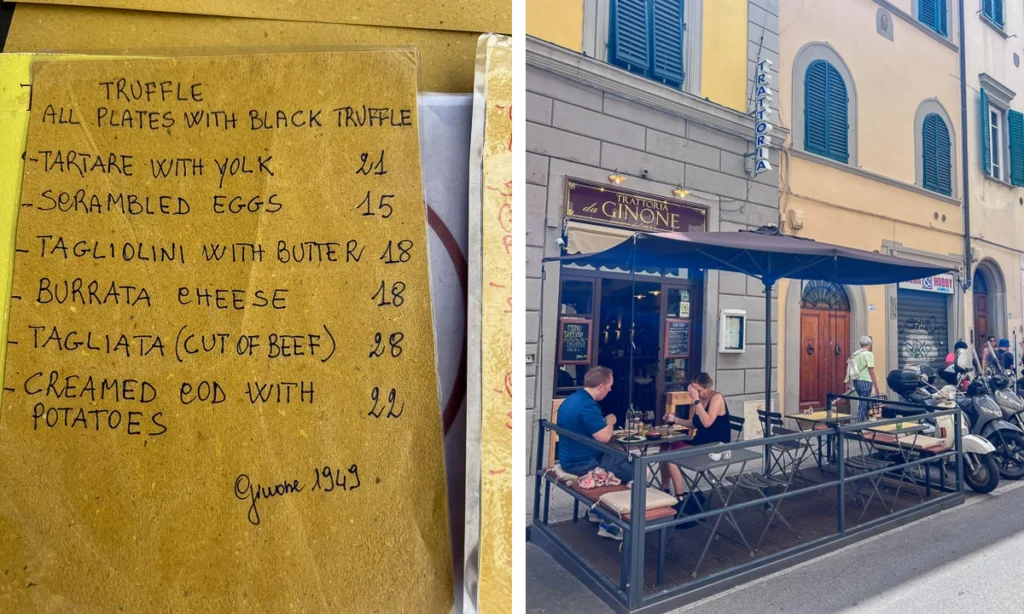 TRUFFLE
ALL PLATES WITH BLACK TRUFFLE
- TARTARE WITH YOLK 21
- SCRAMBLED EGGS 15
- TAGLIOLINI WITH BUTTER 18
- BURRATA CHEESE 18
- TAGLIATA (CUT OF BEEF) 28
- CREAMED COD WITH POTATOES 22
Ginone 1949
TRATTORIA
TRATTORIA
da GINONE
MENU
& HOBBY